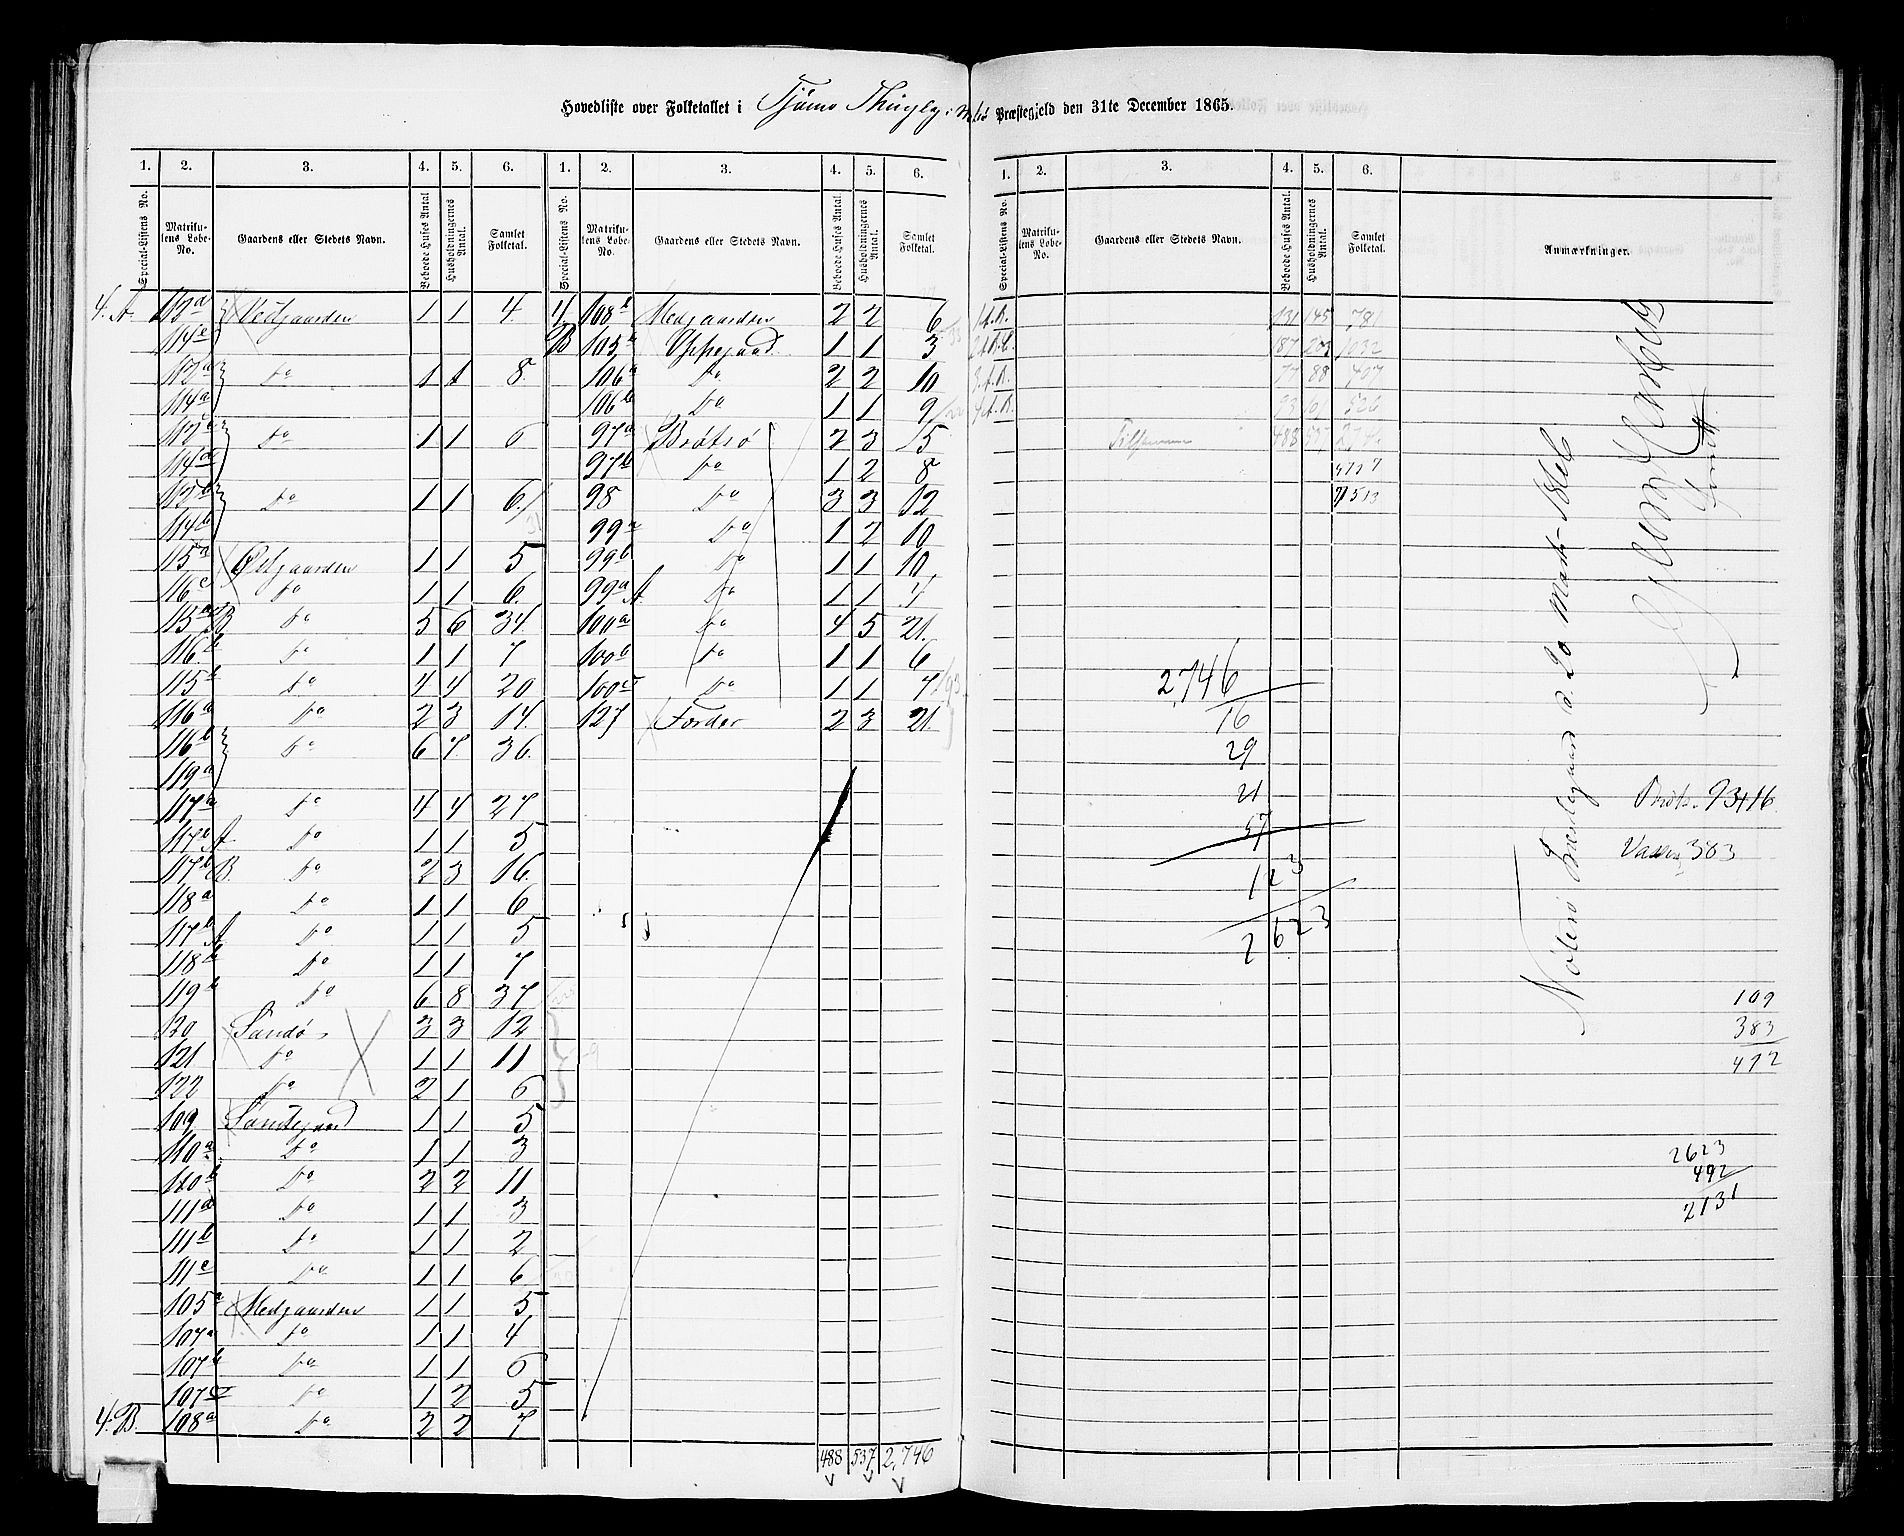 Hovedliste over Folketallet i Tjömö Thinglag i Nøtterø Præstegjeld den 31te December 1865.
1. 2. 3. 4. 5. 6. 1. 2. 3. 4. 5. 6. 1. 2. 3. 4. 5. 6.
Special-Listens No. Matrikulens Løbe-No. Gaardens eller Stedets Navn. Beboede Huses Antal. Husholdningernes Antal. Samlet Folketal. Special-Listens No. Matrikulens Løbe-No. Gaardens eller Stedets Navn. Beboede Huses Antal. Husholdningernes Antal. Samlet Folketal. Special-Listens No. Matrikulens Løbe-No. Gaardens eller Stedets Navn. Beboede Huses Antal. Husholdningernes Antal. Samlet Folketal. Anmærkninger.
4. A. 112a 1 1 4.
114e
do 1 1 8.
114a
do 1 1 6
114d
do 1 1 6
114b
115a Østgaarden 1 1 5
116c do 1 1 6.
115a B do 5 6 34.
116b do 1 1 7
115b do 4 4 20
116a do 2 3 14.
116b do 6 7. 36.
119a
117a do 4 4 27
117b A. do 1 1 5
117b B. do 2 3 16.
118a do 1 1 6
117b A do 1 1 5
118b do 1 1 7
119b do 6 8 37
120 Sandø 3 3 12
121 do 1 1 11
122 do 2 1 6
109 1 1 5
110a do 1 1 3
110b do 2 2 11
111a do 1 1 3
111b do 1 1 2
111c do 1 1 6
105a Medgaarden 1 1 5
107a do 1 1 4
107b do 1 1 6
107c do 1 2 5
4. B. 108a do 2 2 7
4 108b Medgaarden 2 2 6
B 105 Uppegaard 1 1 3
106a do 2 2 10
106b do 1 1 9
97a Brøtsø 2 3 15
97b do 1 2 8
98 do 3 3 12
99a do 1 2 10
99b do 1 1 10
99a A. do 1 1 7
100a do 4 5 21.
100b do 1 1 6
100c do 1 1 7
127 Førder 2 3 21.
488 537 2,746
1 A.B. 131 145 781
2 A.B.C. 187 203 1032
3. A.B. 77 88 407
4 A.B. 93 101 526
Tilsammen 488 537 2,746
4767
7513
2,746
16
29
21
57
123
2623
Gjlerup Hertzberg
Brøts. 93+16
Vasser 383
109
383
492
2623
492
2131